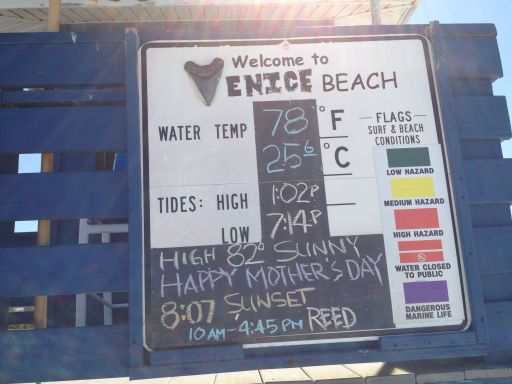 Welcome to
VENICE BEACH
WATER TEMP 78 °F
25⁶ °C
TIDES: HIGH 1:02P
LOW 7:14P
HIGH 82° SUNNY
HAPPY MOTHER'S DAY
8:07 SUNSET
10AM-4:45PM REED
FLAGS
SURF & BEACH
CONDITIONS
LOW HAZARD
MEDIUM HAZARD
HIGH HAZARD
WATER CLOSED
TO PUBLIC
DANGEROUS
MARINE LIFE